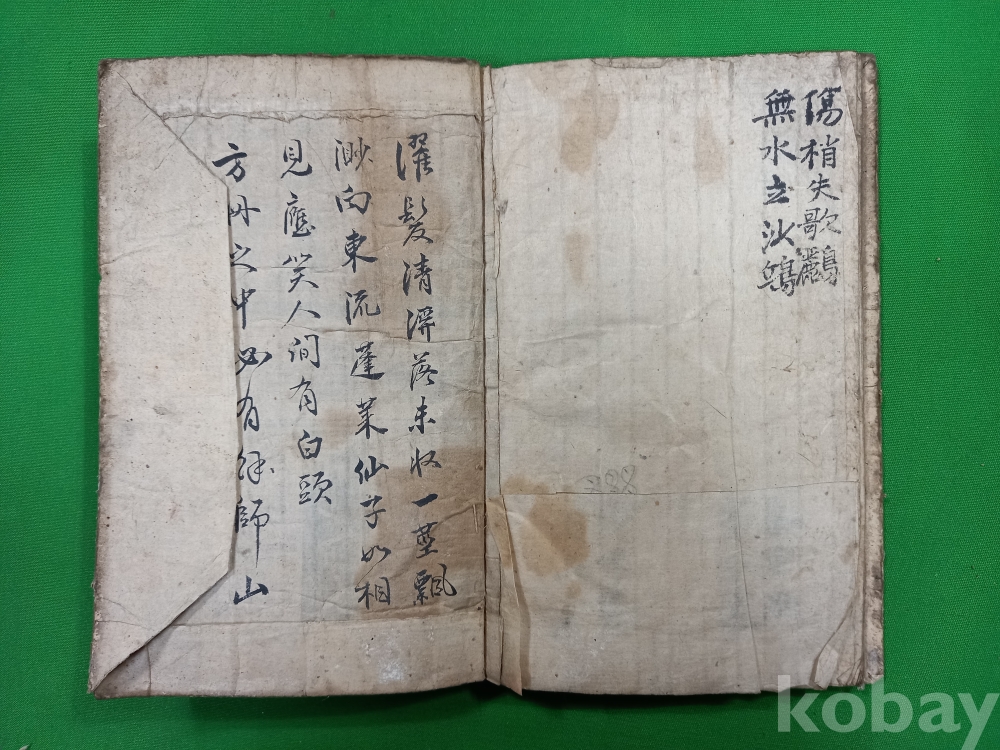 傷稍失歌鸝
無水立沙
濯髮清落未收一莖飄
渺向東流蓬萊仙子如相
見應笑人間有白頭
方之中必有師山
kobay